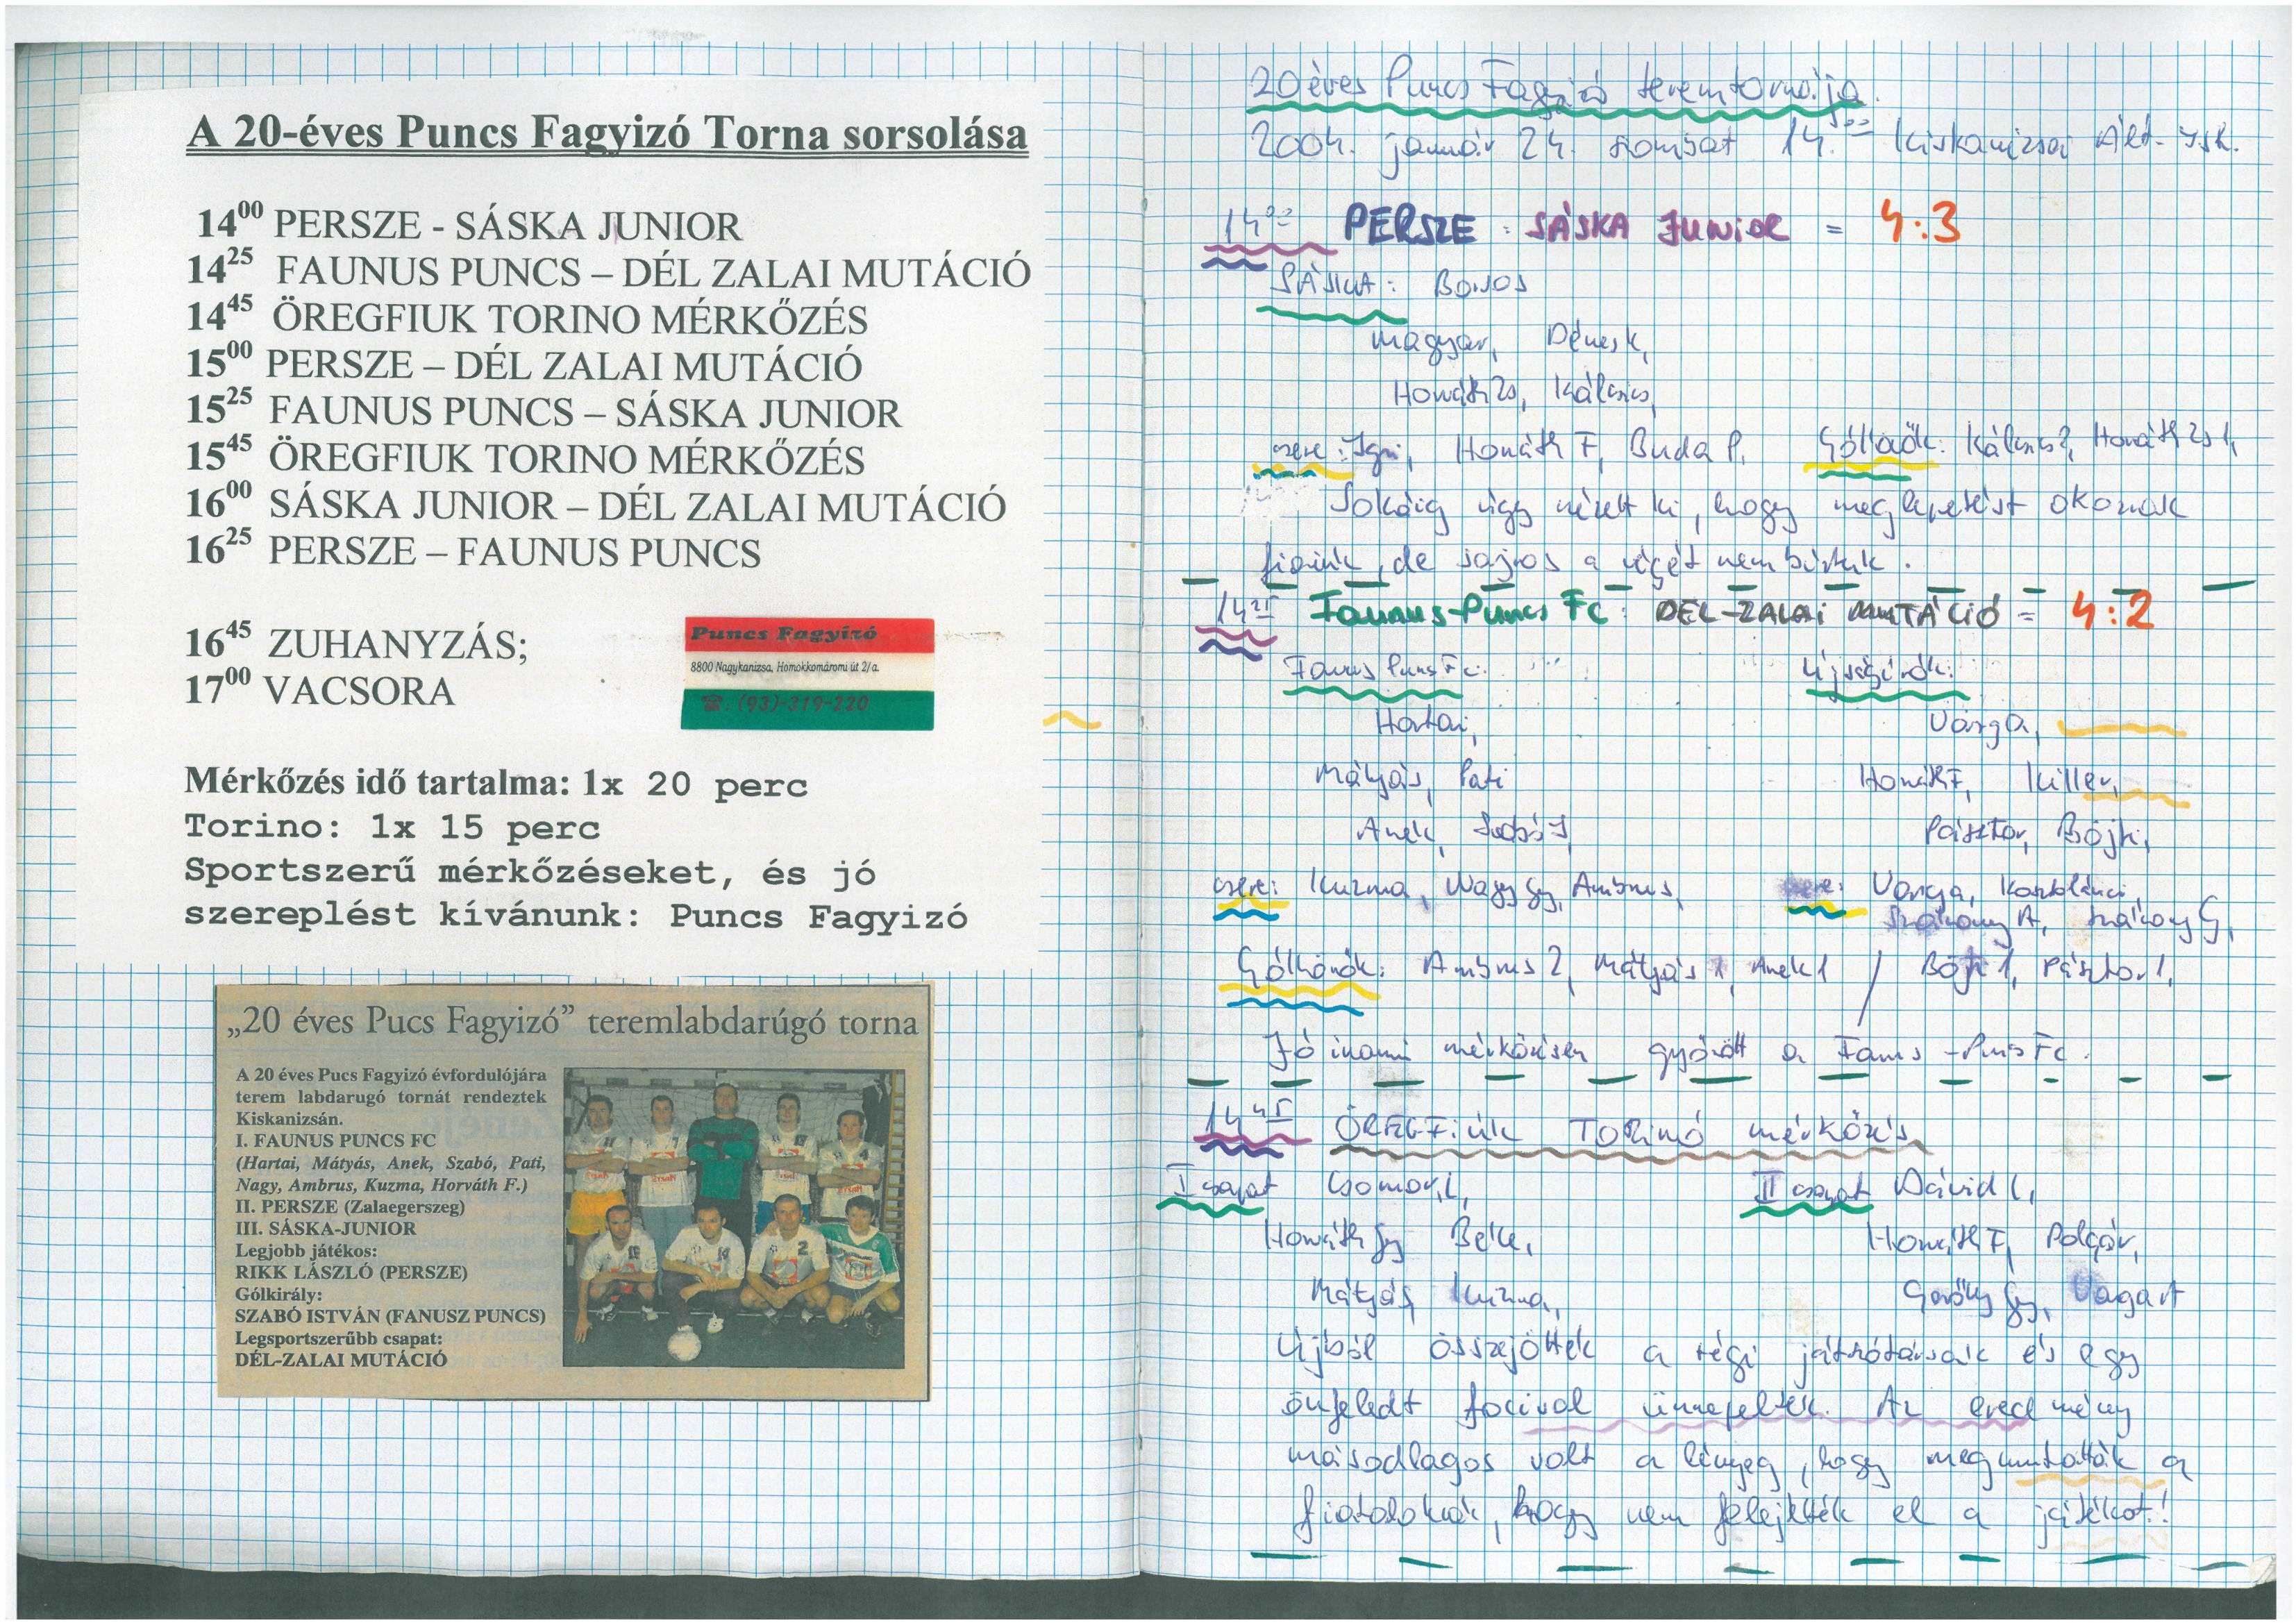 A 20-éves Puncs Fagyizó Torna sorsolása
14⁰⁰ PERSZE - SÁSKA JUNIOR
14²⁵ FAUNUS PUNCS – DÉL ZALAI MUTÁCIÓ
14⁴⁵ ÖREGFIUK TORINO MÉRKŐZÉS
15⁰⁰ PERSZE – DÉL ZALAI MUTÁCIÓ
15²⁵ FAUNUS PUNCS – SÁSKA JUNIOR
15⁴⁵ ÖREGFIUK TORINO MÉRKŐZÉS
16⁰⁰ SÁSKA JUNIOR – DÉL ZALAI MUTÁCIÓ
16²⁵ PERSZE – FAUNUS PUNCS
16⁴⁵ ZUHANYZÁS;
17⁰⁰ VACSORA
Puncs Fagyizó
8800 Nagykanizsa, Homokkomáromi út 2/a.
☎: (93)-319-220
Mérkőzés idő tartalma: 1x 20 perc
Torino: 1x 15 perc
Sportszerű mérkőzéseket, és jó
szereplést kívánunk: Puncs Fagyizó
„20 éves Pucs Fagyizó” teremlabdarúgó torna
A 20 éves Pucs Fagyizó évfordulójára
terem labdarugó tornát rendeztek
Kiskanizsán.
I. FAUNUS PUNCS FC
(Hartai, Mátyás, Anek, Szabó, Pati,
Nagy, Ambrus, Kuzma, Horváth F.)
II. PERSZE (Zalaegerszeg)
III. SÁSKA-JUNIOR
Legjobb játékos:
RIKK LÁSZLÓ (PERSZE)
Gólkirály:
SZABÓ ISTVÁN (FANUSZ PUNCS)
Legsportszerűbb csapat:
DÉL-ZALAI MUTÁCIÓ
20 éves Puncs Fagyizó teremtornája.
2004. január 24. szombat 14.⁰⁰ Kiskanizsai Ált. Isk.
14⁰⁰ PERSZE : SÁSKA JUNIOR = 4:3
SÁSKA: Boros
Magyar, Dénesk,
Horváth Zs, Kálovics,
csere: Horváth F, Buda P. Góllövők: Kálovics 2, Horváth Zs 1,
Sokáig úgy nézett ki, hogy meglepetést okoznak
fiaink, de sajnos a végét nem bírtuk.
14²⁵ Faunus-Puncs Fc : DÉL-ZALAI MUTÁCIÓ = 4:2
Faunus Puncs Fc: Újságírók:
Hartai, Varga,
Mátyás, Pati Horváth F, Killer,
Anek, Szabó I, Pásztor, Böjti,
csere: Kuzma, Nagy Gy, Ambrus, csere: Varga,
Szakony A, Szakony G,
Gólkirályok: Ambrus 2, Mátyás 1, Anek 1 / Böjti 1, Pásztor 1,
Jó iramú mérkőzésen győzött a Faunus-Puncs Fc.
14⁴⁵ ÖREGFIÚK TORINÓ mérkőzés
I csapat Csomor L, II csapat Dávid L,
Horváth Gy Béke, Horváth F, Polgár,
Mátyás, Kuzma,
Újból összejöttek a régi játszótársaik és egy
önfeledt focival ünnepeltek. Az eredmény
másodlagos volt a lényeg, hogy megmutatták a
fiataloknak, hogy nem felejtették el a játékot!